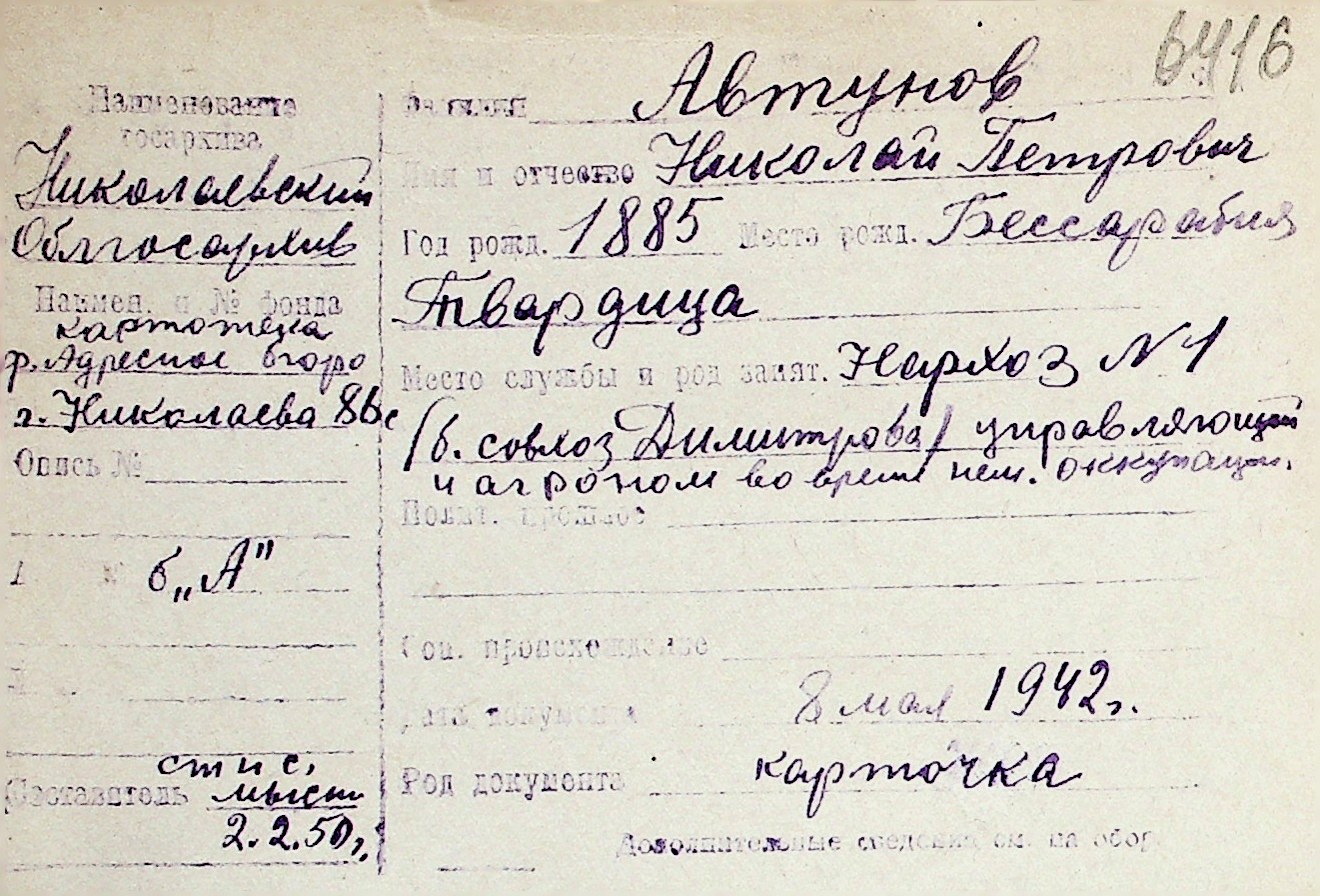 6416
Наименование
госархива
Николаевский
Облгосархив
Наимен. и № фонда
картотека
ф. Адресное бюро
г. Николаева
Опись №
б „А"
стис.
Составитель
2.2.50г.
Фамилия Автунов
Имя и отчество Николай Петрович
Год рожд. 1885 Место рожд. Бессарабия
Твардица
Место службы и род занят. Нархоз N 1
(б. совхоз Димитрова) управляющий
и агроном во время нем. оккупации.
Полит. прошлое
Соц. происхождение
Дата документа 8 мая 1942г.
Род документа карточка
Дополнительные сведения см. на обор.